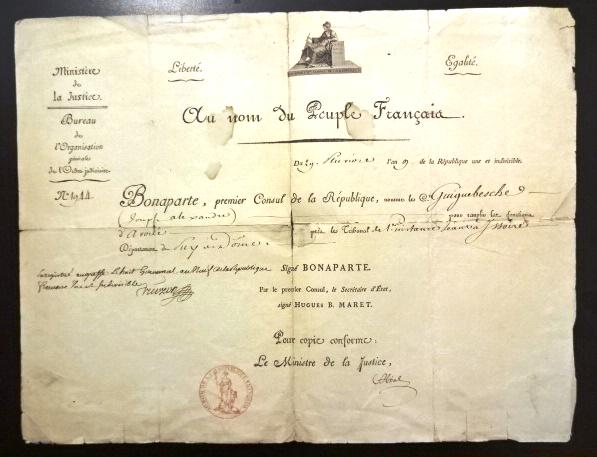 Liberté.
Egalité.
Ministère
de
la Justice.
Bureau
de
l'Organisation
générale
de l'Ordre judiciaire.
Nº 1944.
Au nom du Peuple Français.
Du 29 l'an 9 de la République une et indivisible.
Bonaparte, premier Consul de la République, nomme le Cen Guiguebesche
(Joseph alexandre) pour remplir les fonctions
d'avoué près le Tribunal de 1ere instance séant à Issoire
Département du Puy de Dôme.
Signé BONAPARTE.
Par le premier Consul, le Secrétaire d'État,
signé HUGUES B. MARET.
Enregistré au greffe Germinal an Neuf de la République
française une et Indivisible
Pour copie conforme:
Le Ministre de la Justice,
Abrial